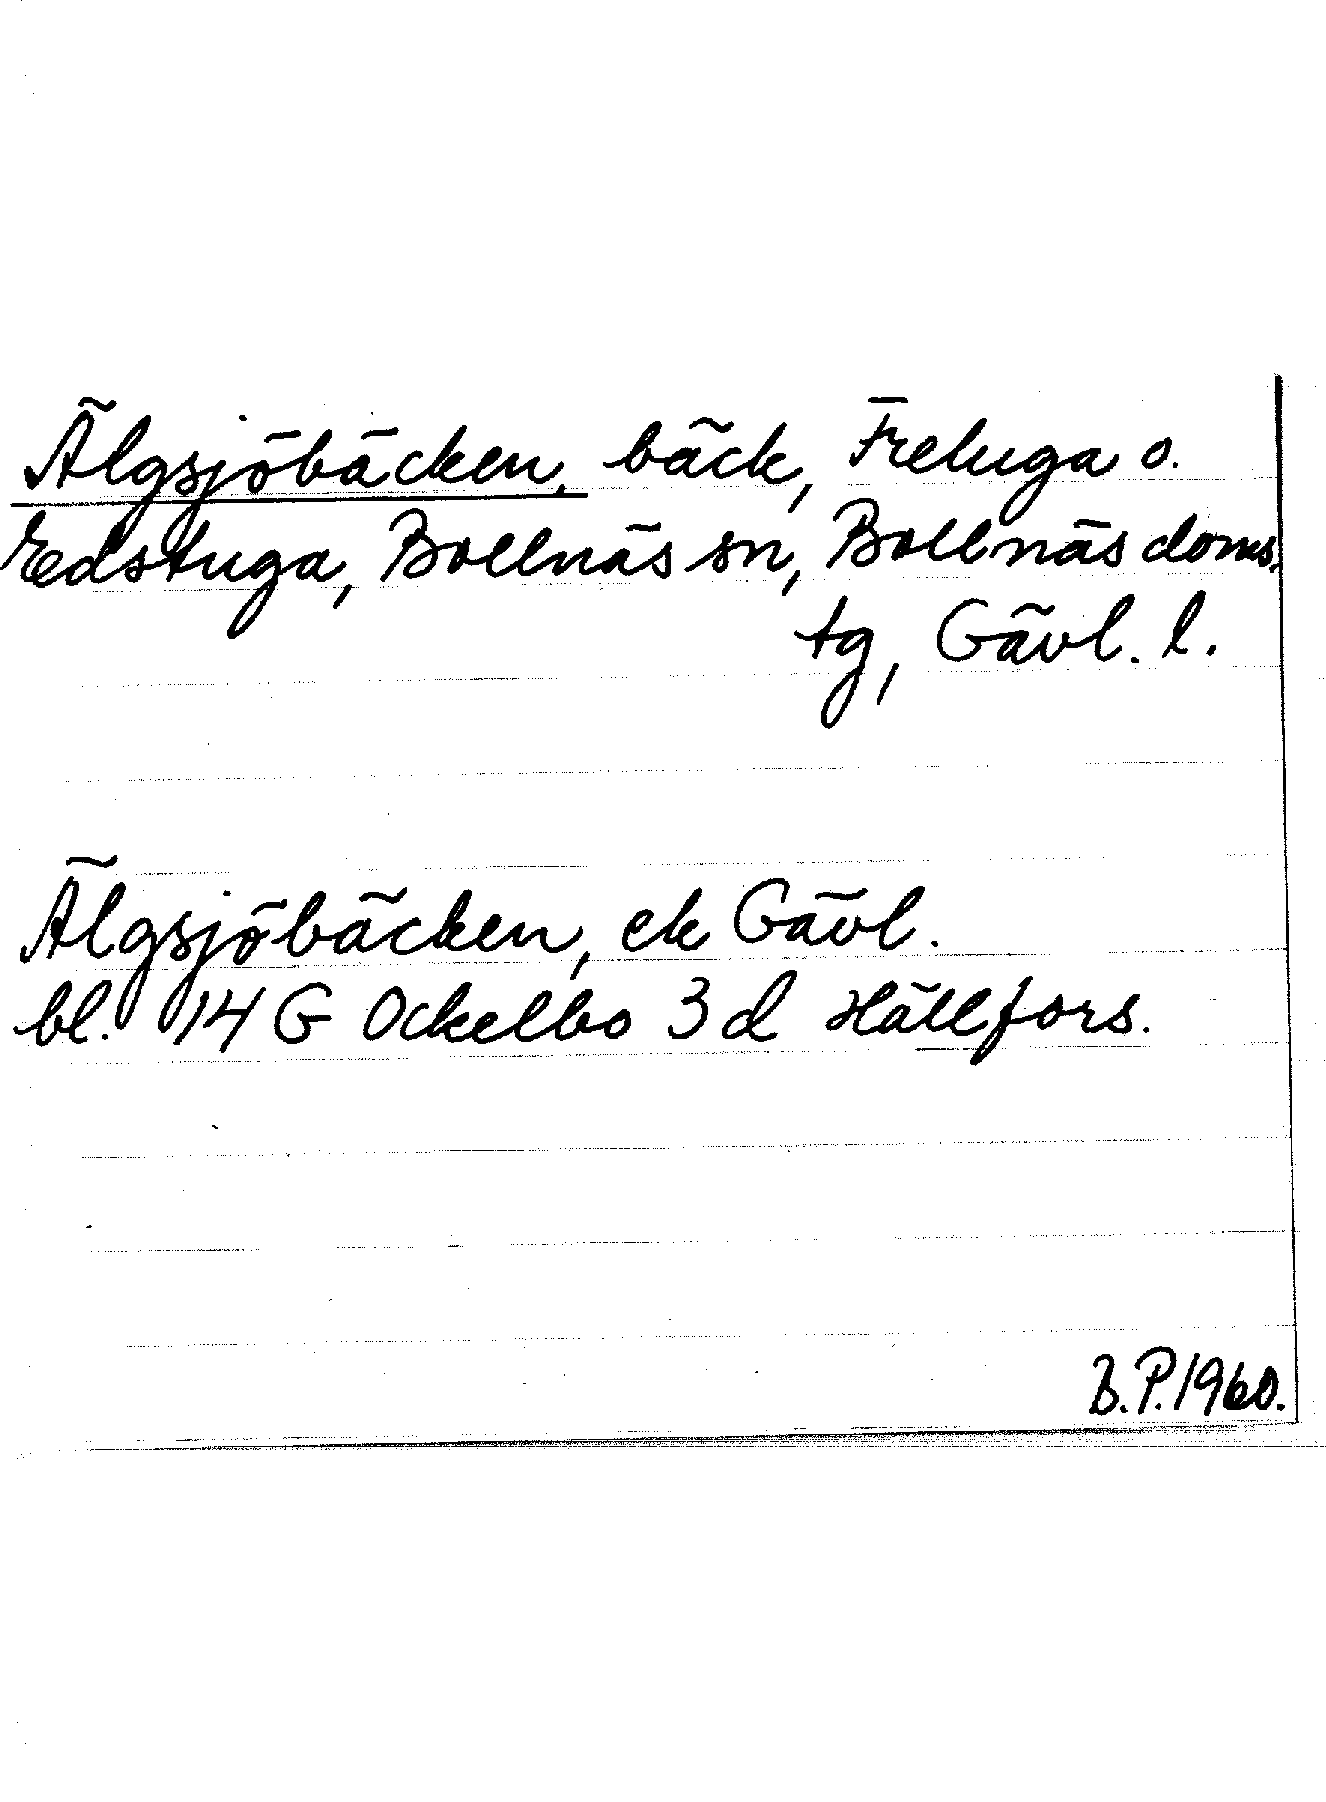 Älgsjöbäcken, bäck, Freluga o.
Edstuga, Bollnäs sn, Bollnäs doms.
tg, Gävl. l.
Älgsjöbäcken, ek Gävl.
bl. 14 G Ockelbo 3 d Hällfors.
B.P.1960.